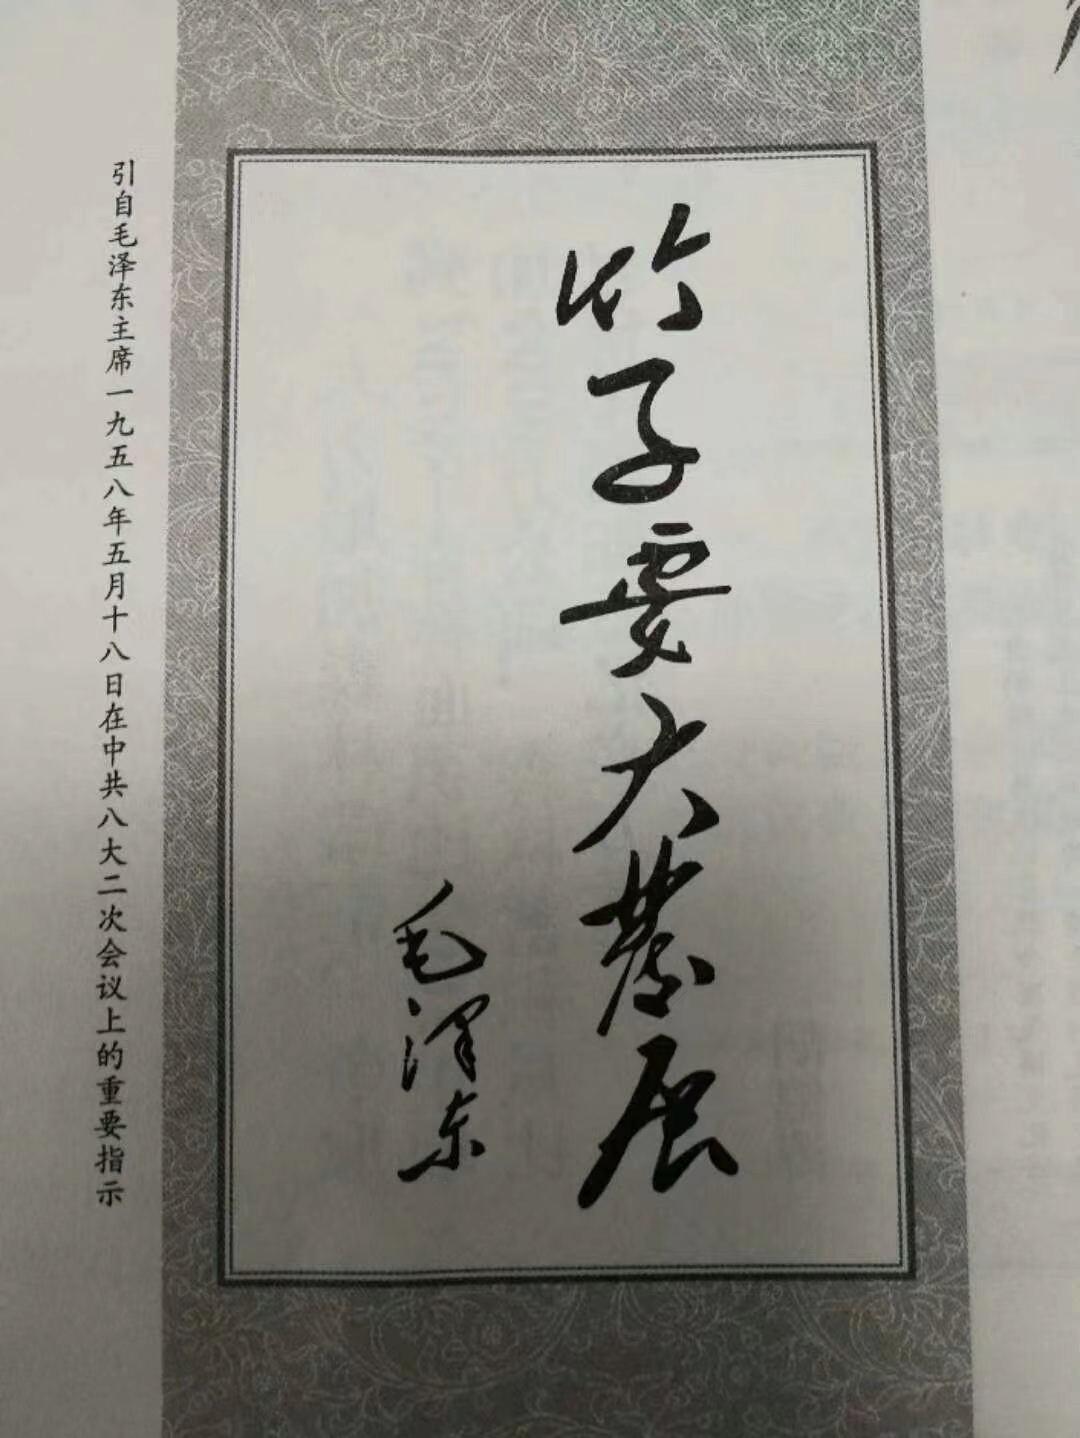 竹子要大发展
毛泽东
引自毛泽东主席一九五八年五月十八日在中共八大二次会议上的重要指示